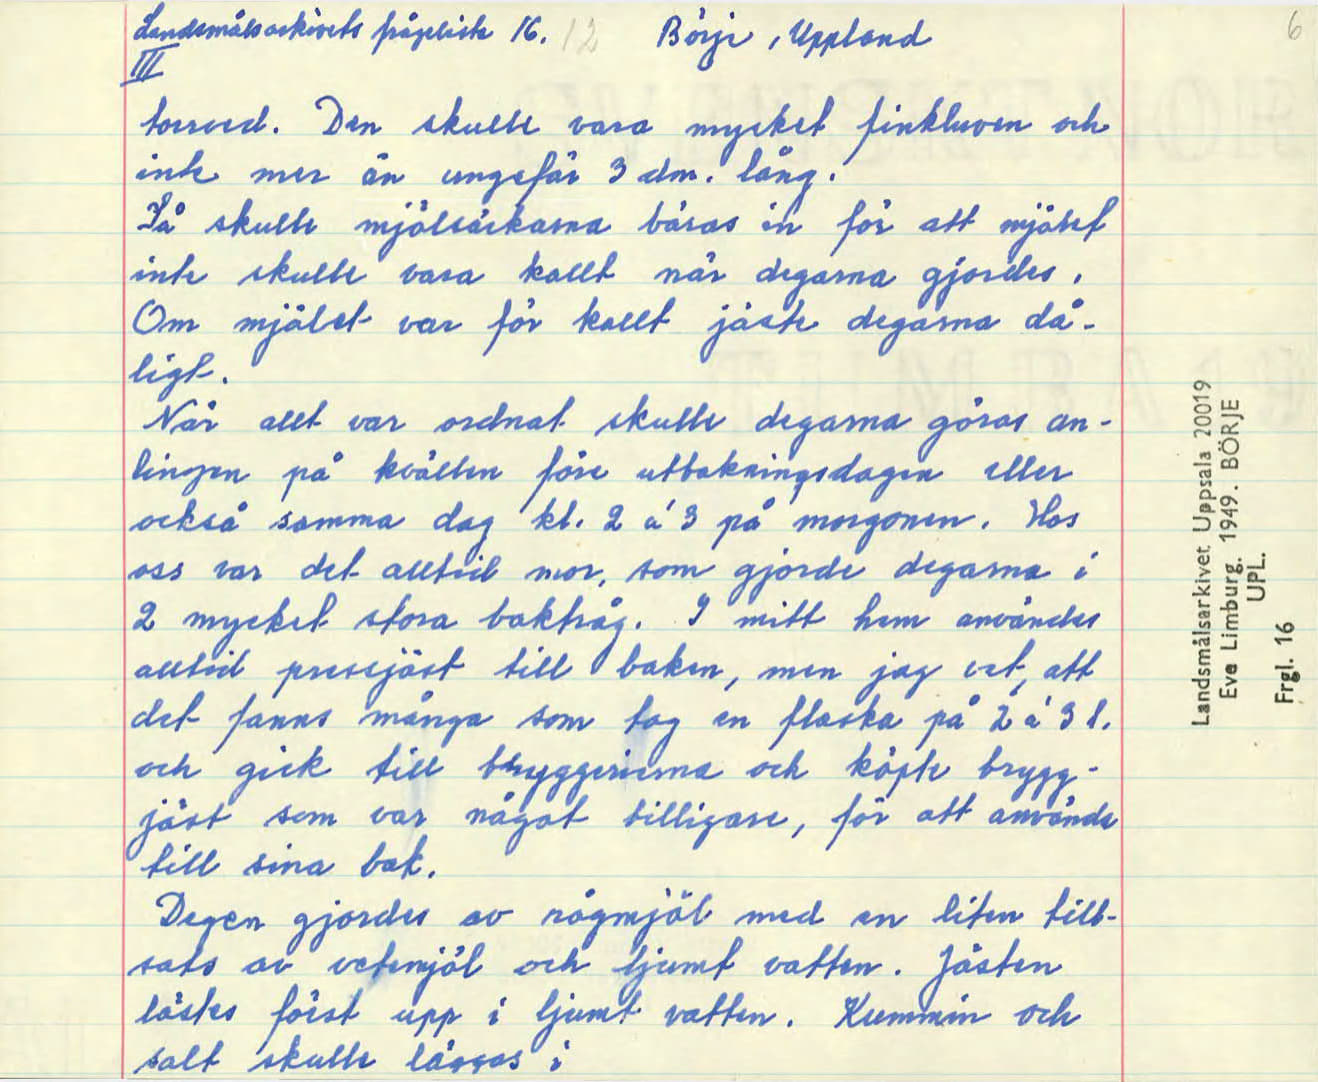 Landsmålsarkivets frågelista 16. 12 Börje, Uppland 6
III
torrved. Den skulle vara mycket finkluven och
inte mer än ungefär 3 dm. lång.
Så skulle mjölsäckarna bäras in för att mjölet
inte skulle vara kallt när degarna gjordes.
Om mjölet var för kallt jäste degarna då-
ligt.
När allt var ordnat skulle degarna göras an-
lingen på kvällen före utbakningsdagen eller
också samma dag kl. 2 á 3 på morgonen. Hos
oss var det alltid mor, som gjorde degarna i
2 mycket stora baktråg. I mitt hem användes
alltid pressjäst till baken, men jag vet, att
det fanns många som tog en flaska på 2 á 3 l.
och gick till bryggerierna och köpte brygg-
jäst som var något billigare, för att använda
till sina bak.
Degen gjordes av rågmjöl med en liten till-
sats av vetemjöl och ljumt vatten. Jästen
löstes först upp i ljumt vatten. Kummin och
salt skulle läggas i
Landsmålsarkivet Uppsala 20019
Eve Limburg. 1949. BÖRJE
UPL.
Frgl. 16